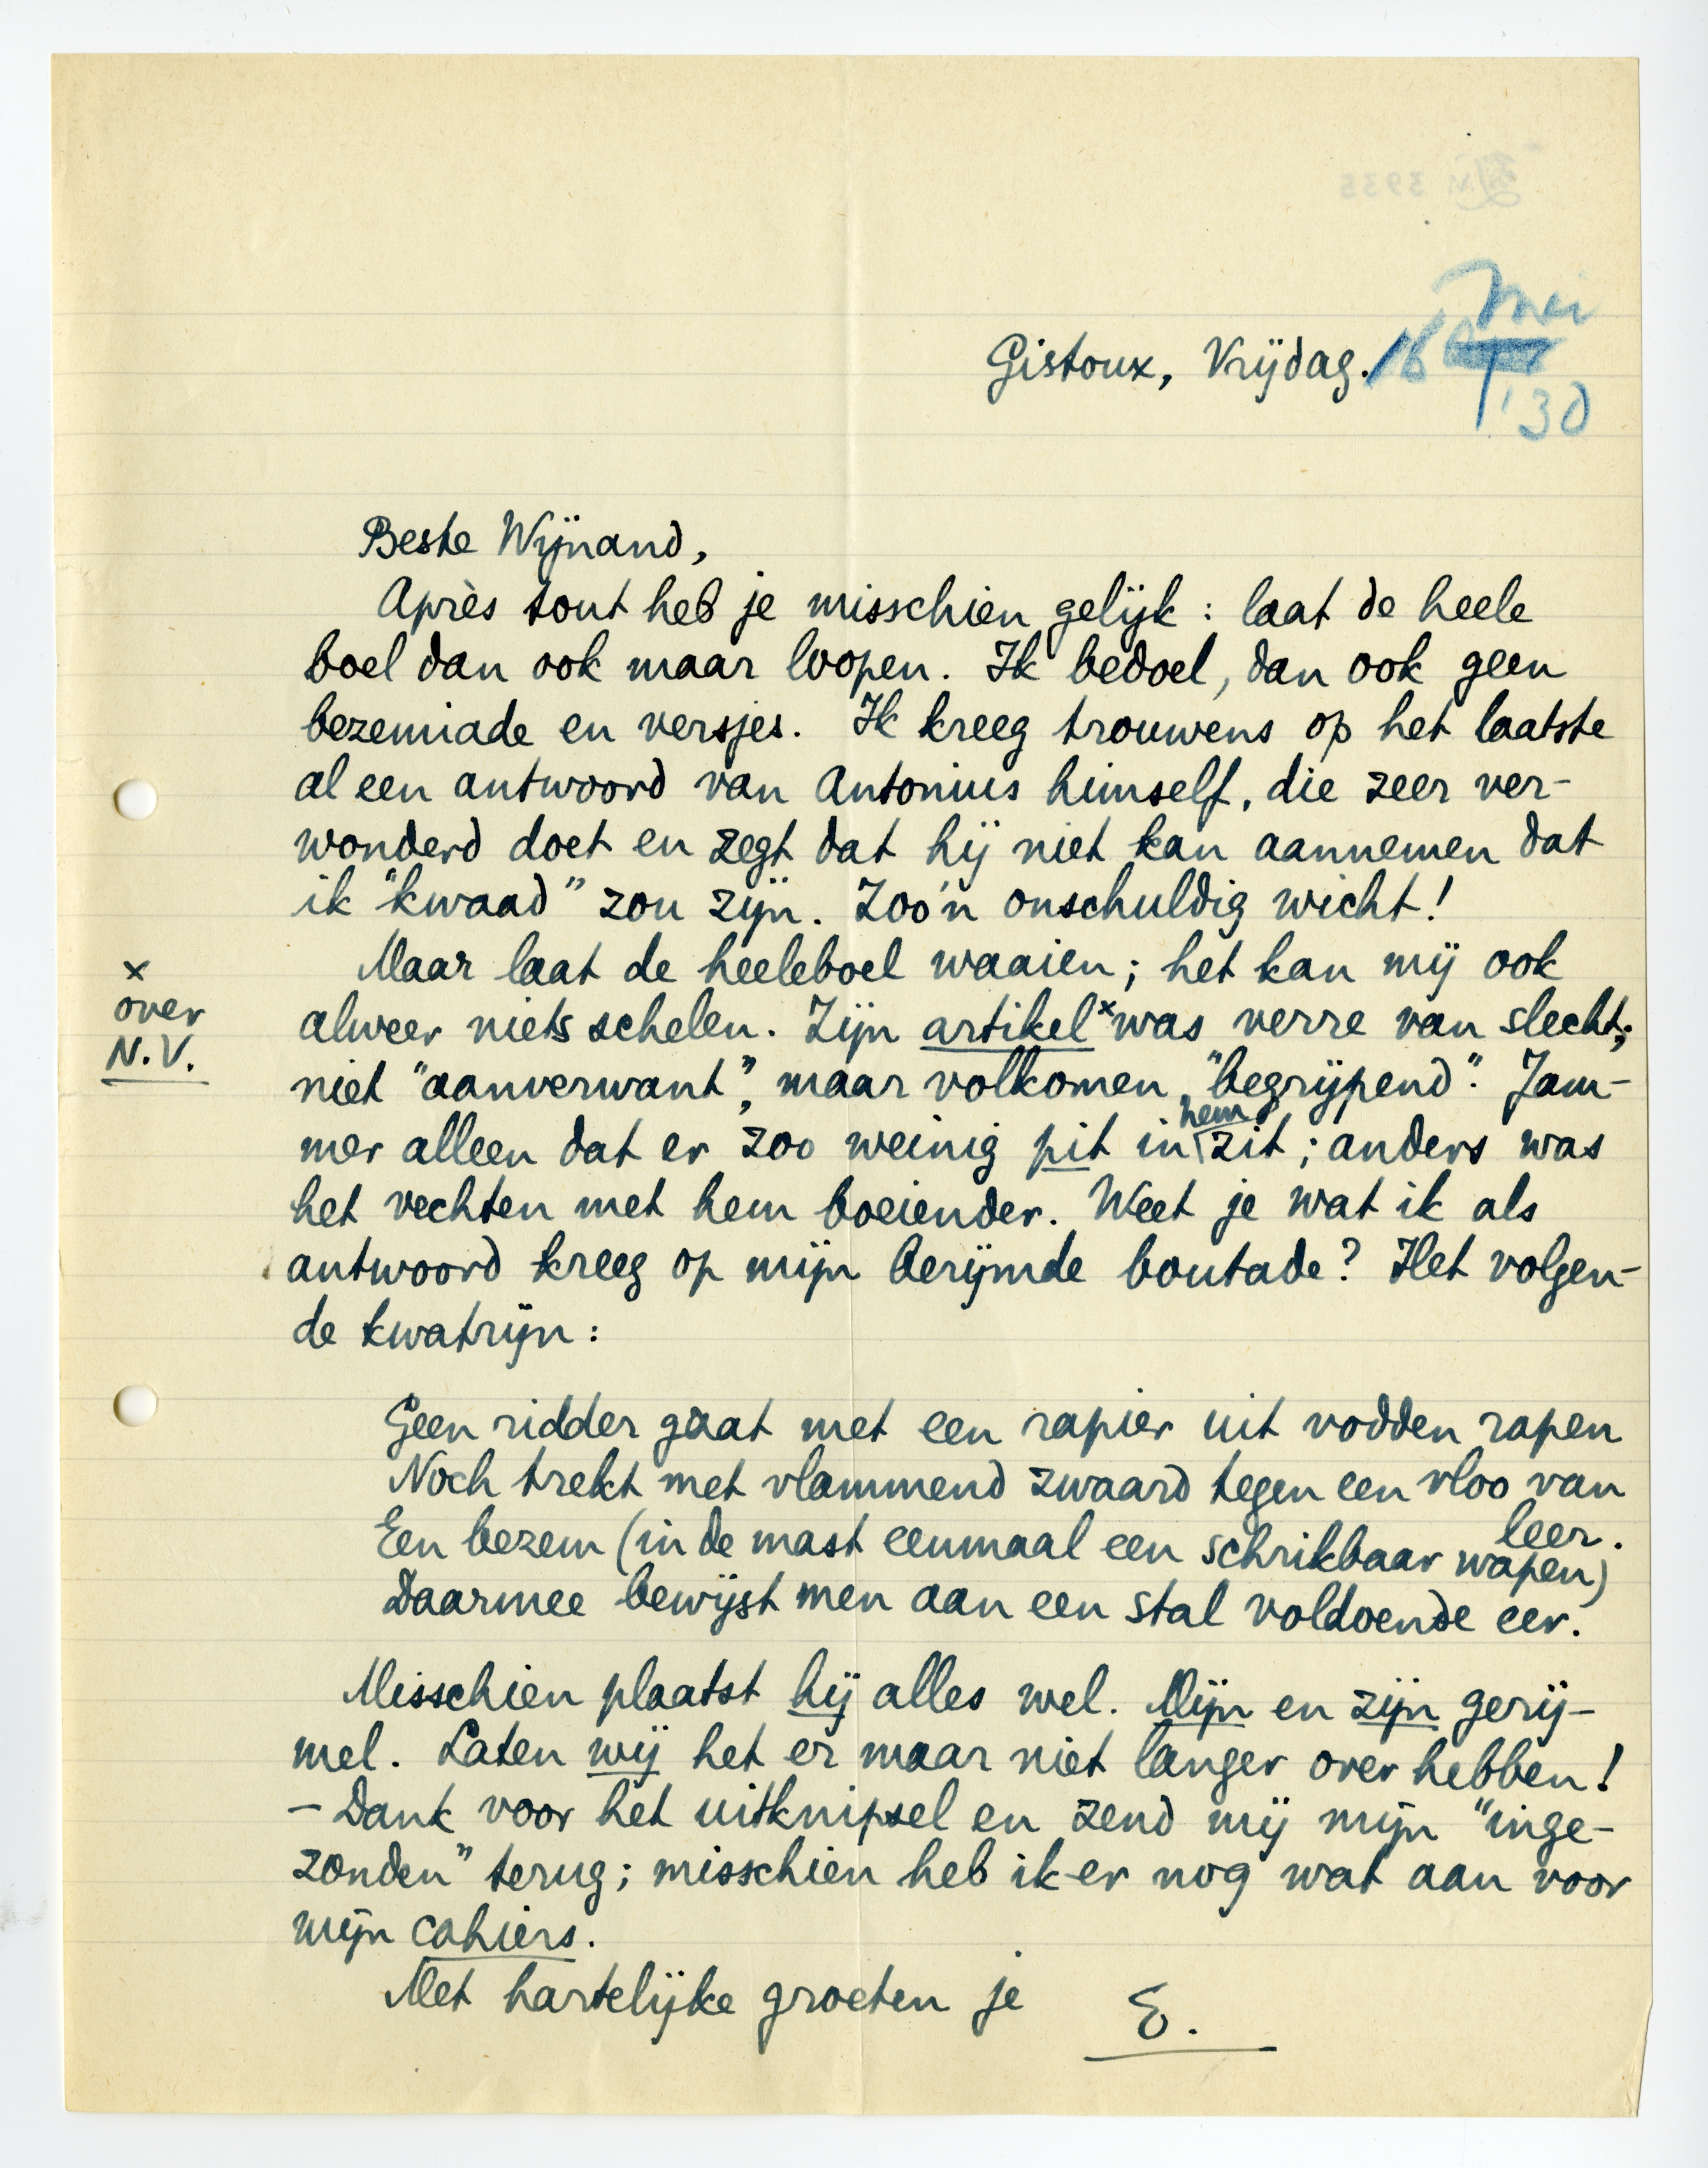 Gistoux, Vrijdag. 16 Mei
'30
Beste Wijnand,
Après tout heb je misschien gelijk : laat de heele
boel dan ook maar loopen. Ik bedoel, dan ook geen
bezemiade en versjes. Ik kreeg trouwens op het laatste
al een antwoord van Antonius himself, die zeer ver-
wonderd doet en zegt dat hij niet kan aannemen dat
ik "kwaad" zou zijn. Zoo'n onschuldig wicht!
Maar laat de heeleboel waaien; het kan mij ook
alweer niets schelen. Zijn artikel x was verre van slecht;
x
over
N.V.
niet "aanverwant", maar volkomen "begrijpend". Jam-
mer alleen dat er zoo weinig pit in hem zit; anders was
het vechten met hem boeiender. Weet je wat ik als
antwoord kreeg op mijn berijmde boutade? Het volgen-
de kwatrijn:
Geen ridder gaat met een rapier uit vodden rapen
Noch trekt met vlammend zwaard tegen een vloo van
leer.
Een bezem (in de mast eenmaal een schrikbaar wapen)
Daarmee bewijst men aan een stal voldoende eer.
Misschien plaatst hij alles wel. Mijn en zijn gerij-
mel. Laten wij het er maar niet langer over hebben!
– Dank voor het uitknipsel en zend mij mijn "inge-
zonden" terug; misschien heb ik er nog wat aan voor
mijn cahiers.
Met hartelijke groeten je E.